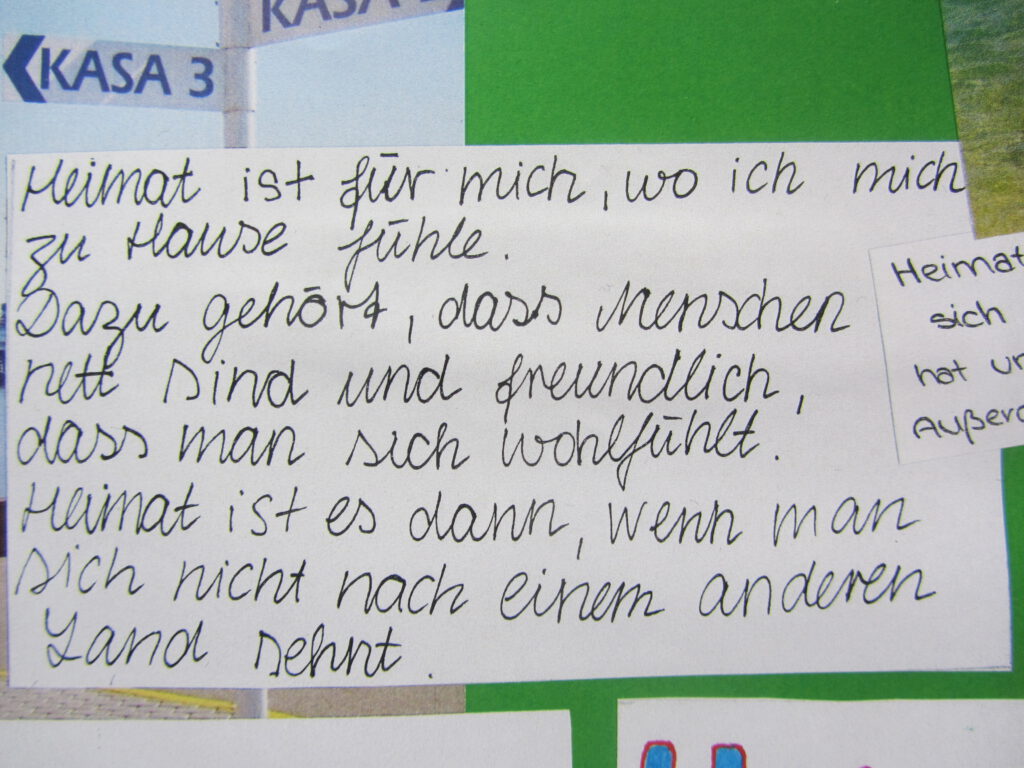 KASA
KASA 3
Heimat ist für mich, wo ich mich
zu Hause fühle.
Dazu gehört, dass Menschen
nett sind und freundlich,
dass man sich wohlfühlt.
Heimat ist es dann, wenn man
sich nicht nach einem anderen
Land sehnt.
Heimat
sich
hat